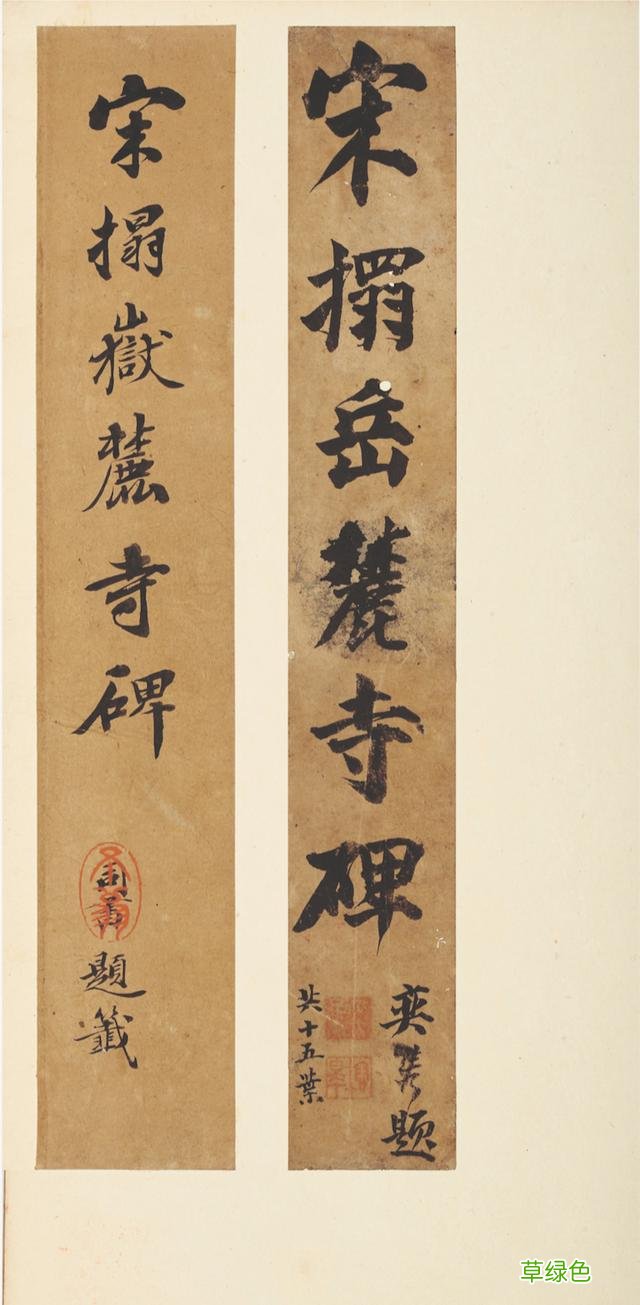 宋搨岳麓寺碑
奕譓題
共十五葉
宋搨嶽麓寺碑
題籤
草绿色